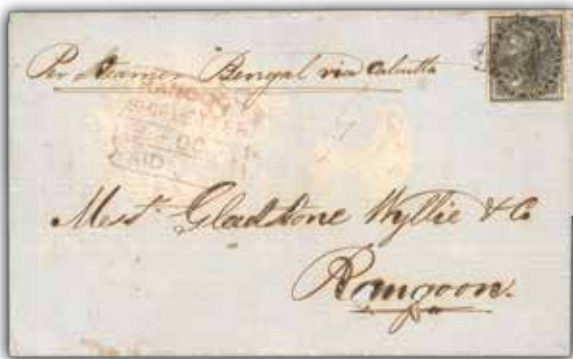 Per Steamer Bengal via Calcutta
Messrs. Gladstone Wyllie & Co
Rangoon.